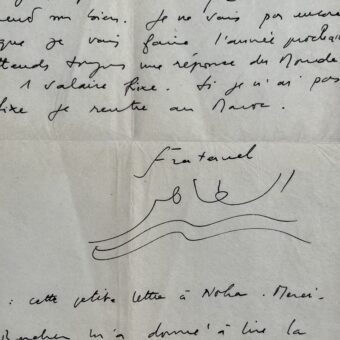 end un bien. Je ne vais pas encore
que je vais faire l'année prochai
ttends toujours une réponse du Monde
1 salaire fixe. Si je n'ai pas
fixe je rentre au Maroc.
Fraternel
الطاهر
: cette petite lettre à Noha. Merci.
m'a donné à lire la